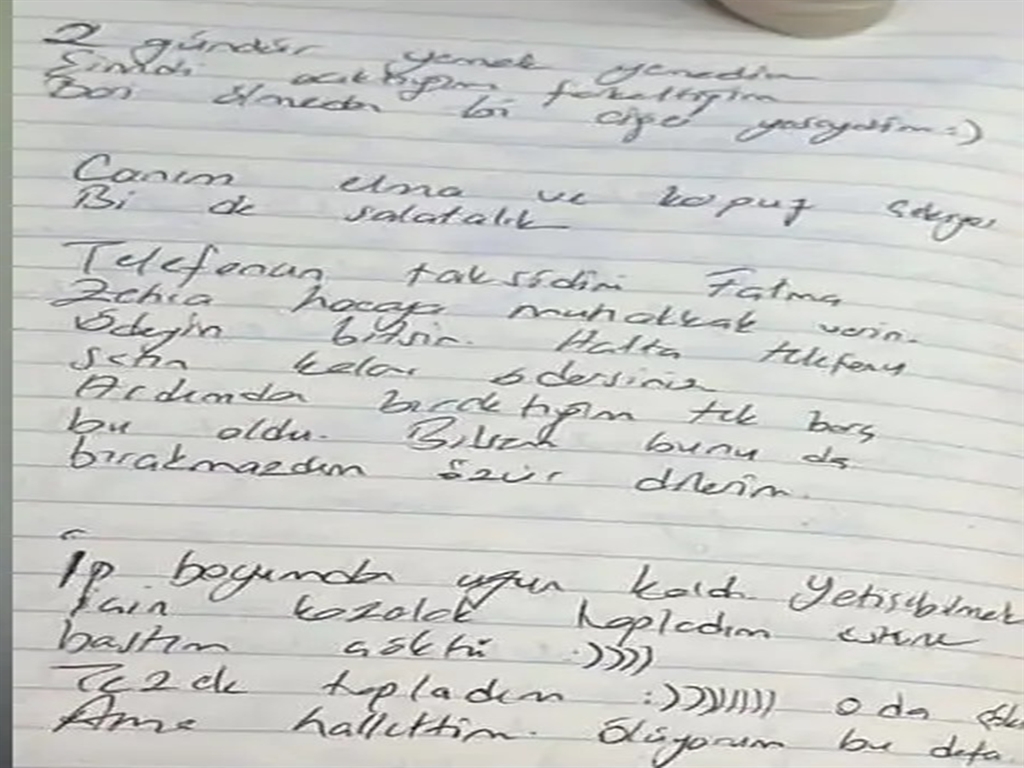 2 gündür yemek yemedim
Şimdi acıktığım farkettiğim
Bari ölmeden bi çiğ yasaydım :)
Canım elma ve karpuz çekiyor
Bi de salatalık
Telefonun taksidini Fatma
Zehra hocaya muhakkak verin.
Ödeyin bitsin. Hatta telefonu
satın kelar edersiniz
Ardımda bıraktığım tek borç
bu oldu. Bilsem bunu da
bırakmazdım özür dilerim.
İp boyumdan uzun kaldı. Yetişebilmek
için kozalak topladım üstüne
bastım çöktü :))))
Tezek topladım :))))))))) o da
Ama hallettim. Ölüyorum bu defa.